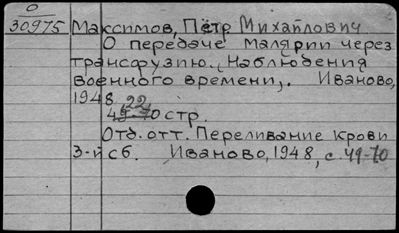 О
30975
Максимов, Пётр Михайлович
О передаче малярии через
трансфузию. Наблюдения
военного времени,. Иваново,
1948,
22
49-70 стр.
Отд. отт. Переливание крови
3-й сб. Иваново, 1948, с. 49-70